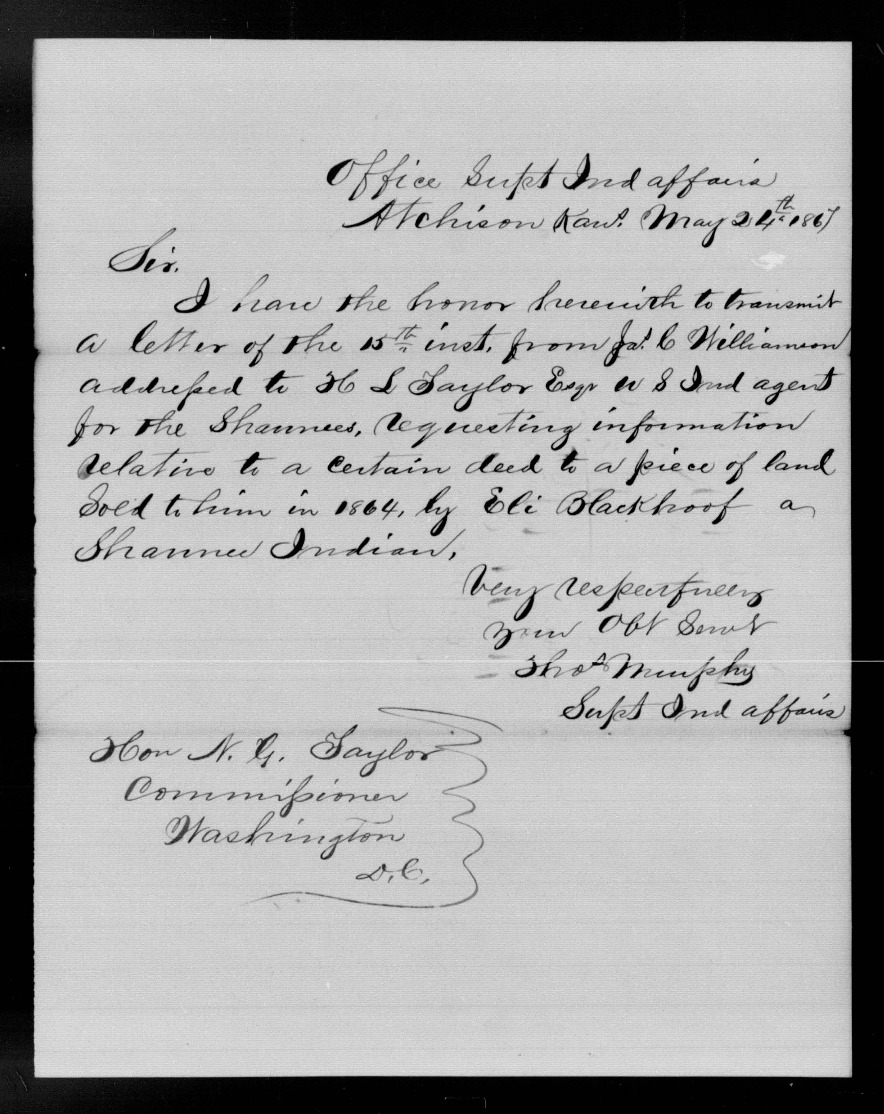 Office Supt Ind affairs
Atchison Kans. May 24th 1867
Sir.
I have the honor herewith to transmit
a letter of the 15th inst. from Jas. C Williamson
addressed to H L Taylor Esqr U S Ind agent
for the Shawnees, requesting information
relative to a certain deed to a piece of land
Sold to him in 1864, by Eli Blackhoof a
Shawnee Indian,
Very respectfully
your Obt Servt
Thos Murphy
Supt Ind affairs
Hon N. G. Taylor
Commissioner
Washington
D.C.